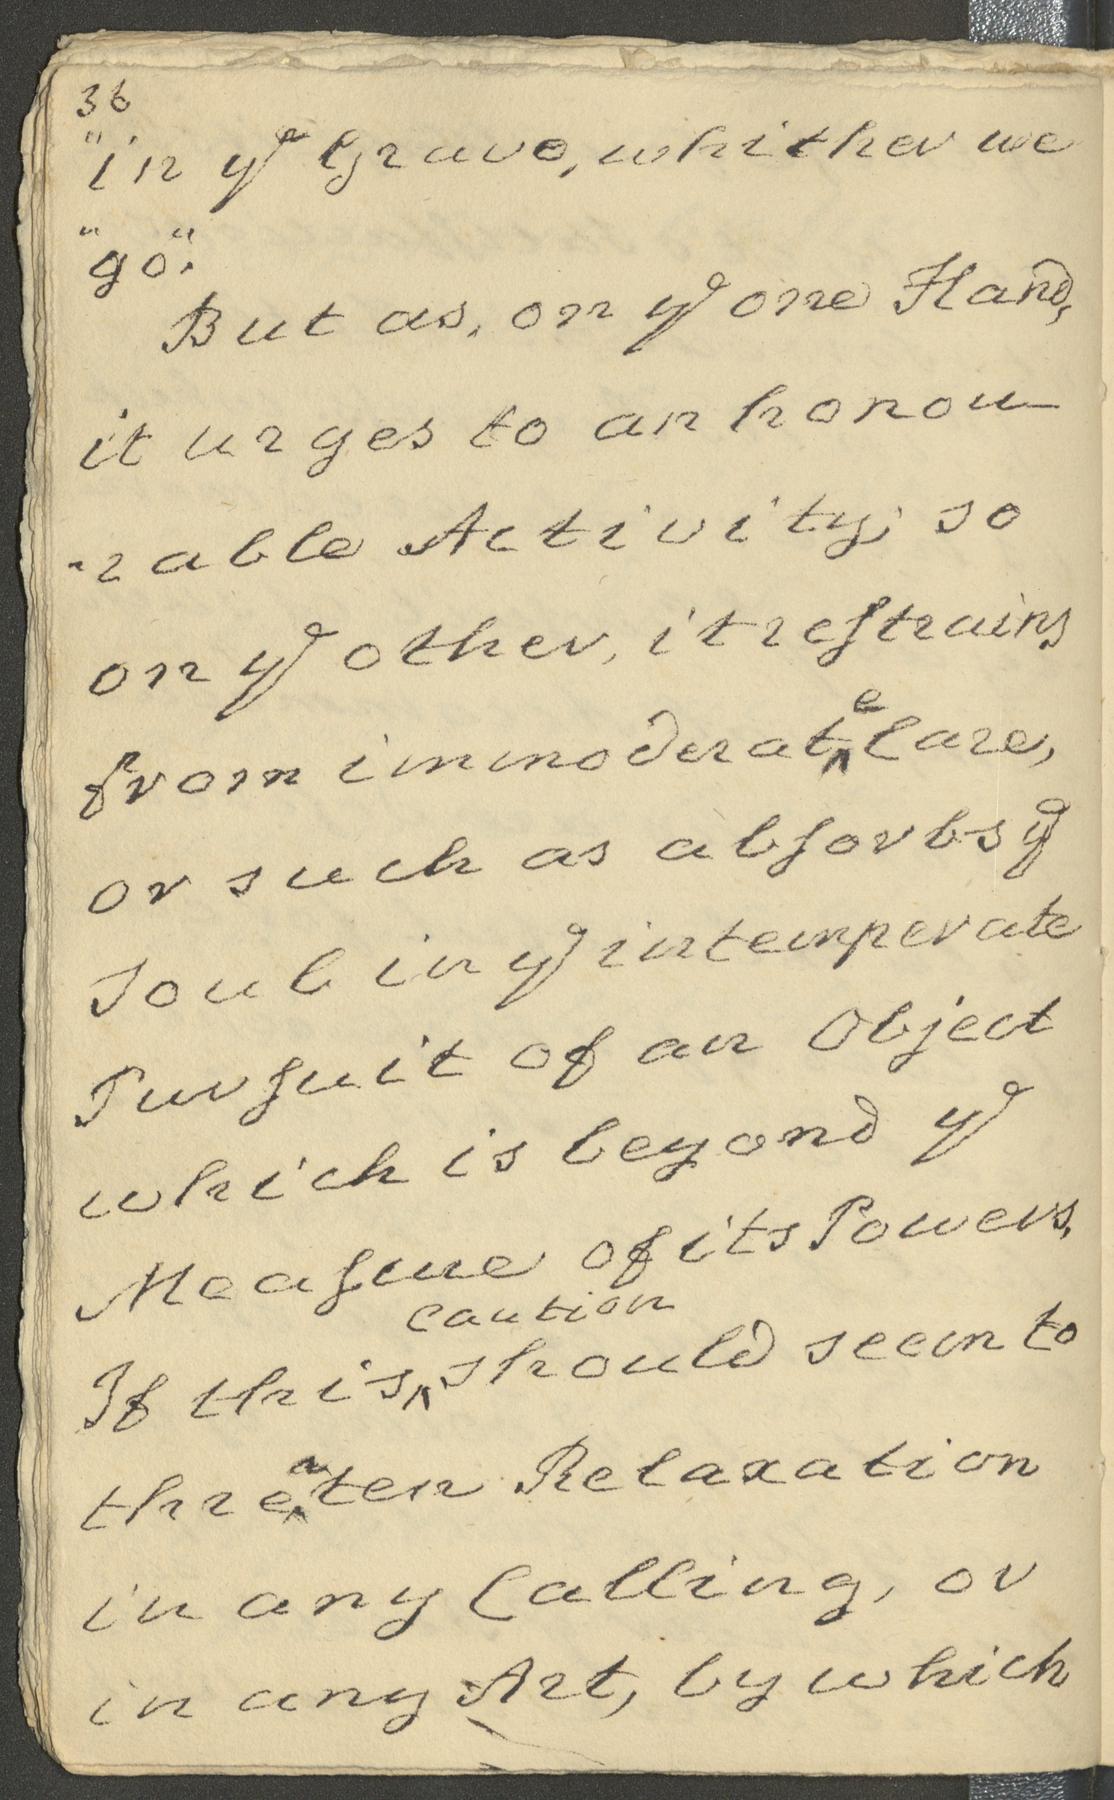 36
"in yᵉ Grave, whither we
"go".
But as, on yᵉ one Hand,
it urges to an honou
-rable Activity; so
on yᵉ other, it reſtrains
from immoderate Care,
or such as abſorbs yᵉ
Soul in yᵉ intemperate
Purſuit of an Object
which is beyond yᵉ
Meaſure of its Powers.
If this caution should seem to
threaten Relaxation
in any Calling, or
in any Art, by which